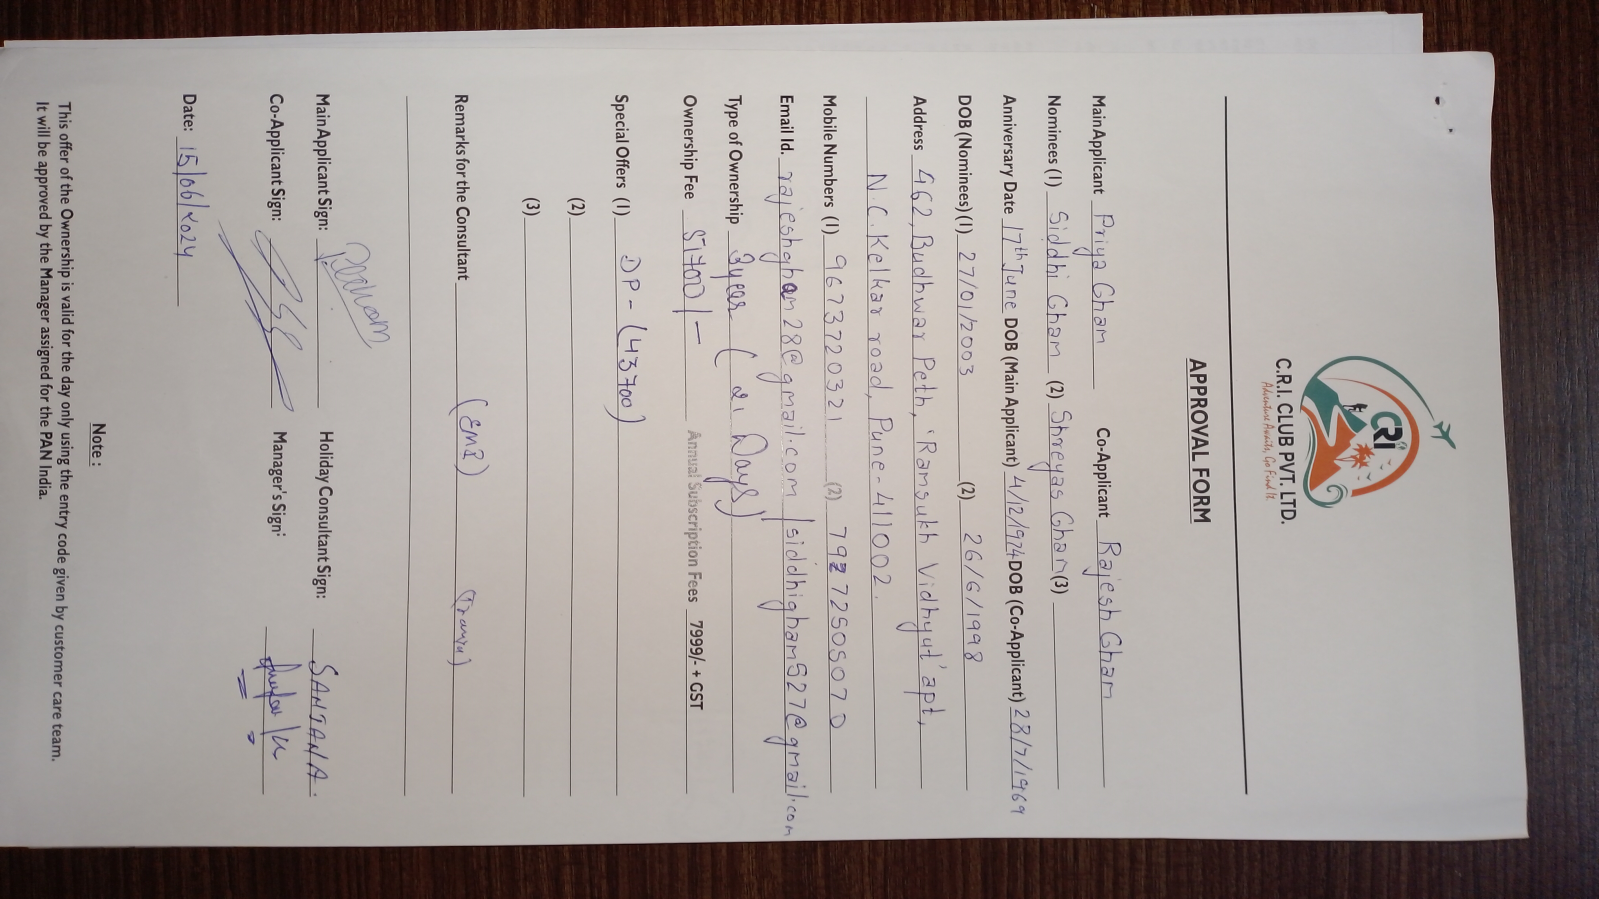 CRI
C.R.I. CLUB PVT. LTD.
Adventure Awaits, Go Find It.
APPROVAL FORM
Main Applicant Priya Gham Co-Applicant Rajesh Gham
Nominees (1) Siddhi Gham (2) Shreyas Gham (3)
Anniversary Date 17th June DOB (Main Applicant) 4/12/1974 DOB (Co-Applicant) 28/7/1969
DOB (Nominees) (1) 27/01/2003 (2) 26/6/1998
Address 462, Budhwar Peth, 'Ramsukh Vidhyut' apt,
N.C. Kelkar road, Pune - 411002.
Mobile Numbers (1) 9673720321 (2)
Email Id. rajeshgham28@gmail.com / siddhigham527@gmail.com
Type of Ownership 3 year ( 21 Days)
Ownership Fee 51700/- Annual Subscription Fees 7999/- + GST
Special Offers (1) DP - (43700)
(2)
(3)
Remarks for the Consultant
Main Applicant Sign: Holiday Consultant Sign: SANJANA.
Co-Applicant Sign: Manager's Sign:
Date: 15/06/2024
Note :
This offer of the Ownership is valid for the day only using the entry code given by customer care team.
It will be approved by the Manager assigned for the PAN India.